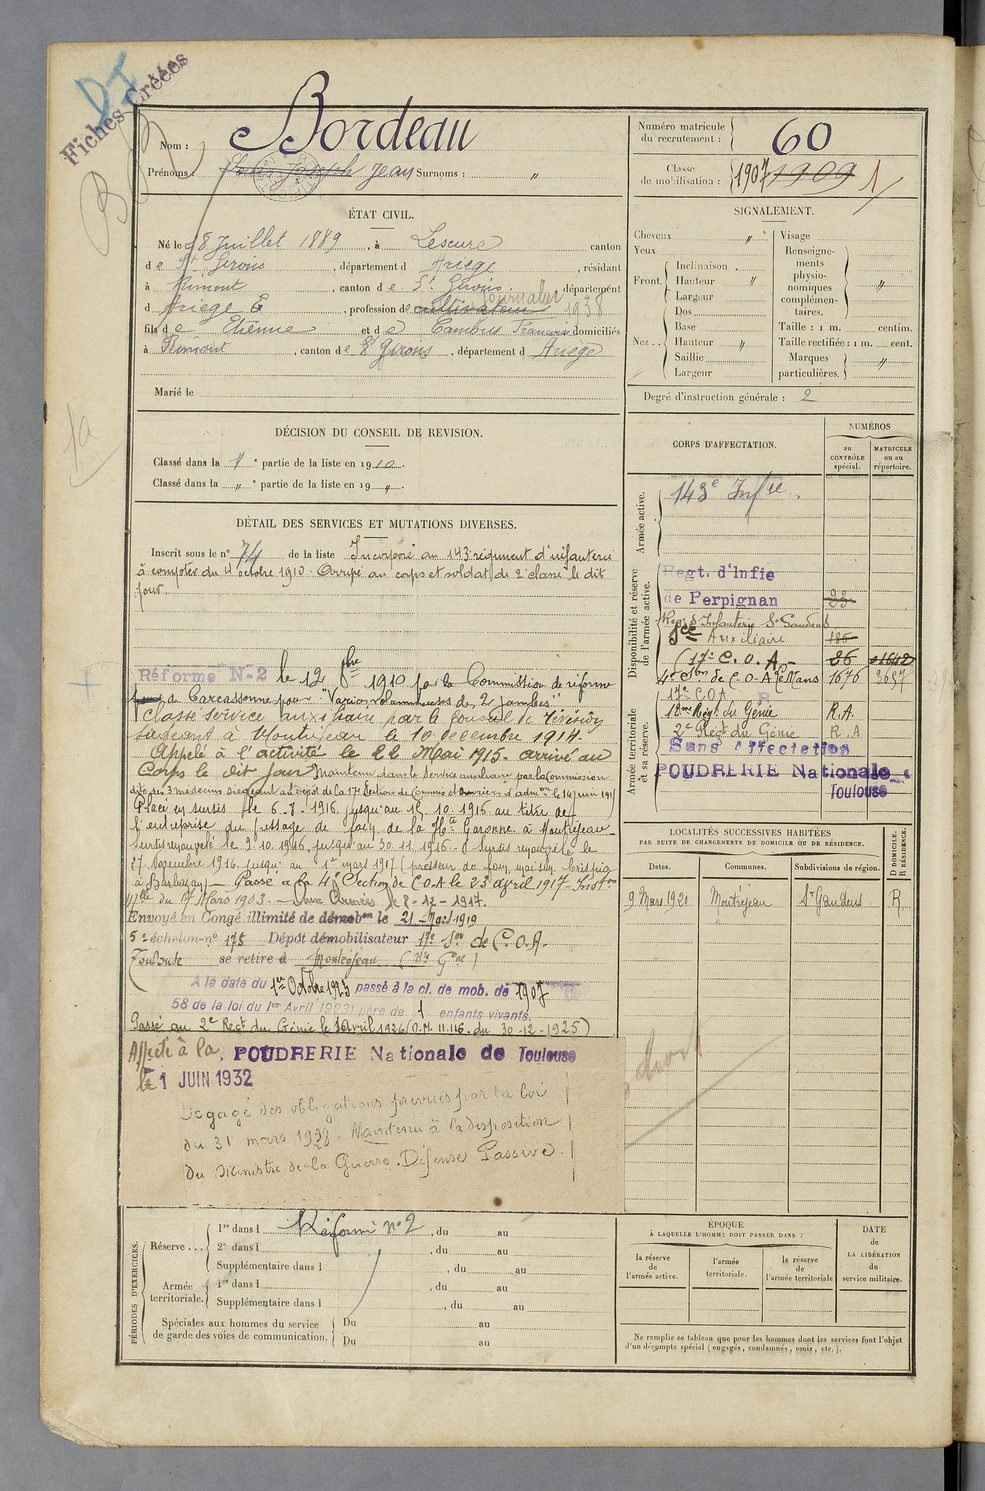 Fiches Créées
Nom : Bordeau
Prénoms : Louis Joseph Jean Surnoms : "
Numéro matricule du recrutement : 60
Classe de mobilisation : 1907 1909 1
ÉTAT CIVIL.
Né le 8 Juillet 1889, à Lescure canton
de St Girons, département d Ariège, résidant
à Rimont, canton de St Girons, département
d Ariège, profession de cultivateur Journalier 1938
fils de Etienne et de Cambus domiciliés
à Rimont, canton de St Girons, département d Ariège
Marié le
SIGNALEMENT.
Cheveux "
Yeux
Front. Inclinaison
Hauteur "
Largeur
Nez... Dos
Base
Hauteur "
Saillie
Largeur
Visage
Renseignements physionomiques complémentaires. "
Taille : 1 m. centim.
Taille rectifiée : 1 m. cent.
Marques particulières. "
Degré d'instruction générale : 2
DÉCISION DU CONSEIL DE REVISION.
Classé dans la 1e partie de la liste en 1910.
Classé dans la " e partie de la liste en 19 ".
DÉTAIL DES SERVICES ET MUTATIONS DIVERSES.
Inscrit sous le n° 74 de la liste Incorporé au 143e régiment d'infanterie
à compter du 4 octobre 1910. Arrivé au corps et soldat de 2e classe le dit
jour.
Réformé N° 2 le 12 8bre 1910 par la Commission de réforme
de Carcassonne pour "Varices volumineuses des 2 jambes"
Classé Service auxiliaire par le Conseil de révision
siégeant à Montréjeau le 10 décembre 1914.
Appelé à l'activité le 22 Mai 1915. arrivé au
Corps le dit jour Maintenu dans le service auxiliaire par la Commission
dite des 3 médecins siégeant au dépôt de la 17e Section de Commis et Ouvriers d'admon le 14 juin 191
Placé en sursis le 6.8.1916 jusqu'au 15.10.1916 au titre de
l'entreprise du pressage de foin de la Hte Garonne à Montréjeau
Sursis renouvelé le 9.10.1916 jusqu'au 30.11.1916 - Sursis renouvelé le
27 Novembre 1916 jusqu'au 1er mars 1917 (presseur de foin, maison
à Barbazan) - Passé à la 4e Section de C.O.A. le 23 avril 1917 - Inston
du 17 Mars 1903. - Aux Armées le 8-12-1917.
Envoyé en Congé illimité de démobon le 21 Mars 1919
5e échelon n° 175 Dépôt démobilisateur 17e Son de C.O.A.
Toulouse se retire à Montréjeau (Hte Gne)
A la date du 1er Octobre 1925 passé à la cl. de mob. de 1907
58 de la loi du 1er Avril 1923) père de 1 enfants vivants.
Passé au 2e Regt du Génie le 16 avril 1926 (D.M. 11.116. du 30-12-1925)
Affecté à la POUDRERIE Nationale de Toulouse
le 1 JUIN 1932
Dégagé des obligations prévues par la loi
du 31 mars 1928 - Maintenu à la disposition
du Ministre de la Guerre. Défense Passive.
CORPS D'AFFECTATION.
NUMÉROS
au CONTRÔLE spécial.
MATRICULE ou au répertoire.
Armée active.
143e Infie
Disponibilité et réserve de l'armée active.
Regt. d'Infie
de Perpignan 23
Regt d'Infanterie St Gaudens
Sce Auxiliaire 186
17e C.O.A. 26
4e Son de C.O.A. Le Mans 1676 3697
Armée territoriale et sa réserve.
17e C.O.A.
Regt. du Génie R.A.
2e Regt du Génie R.A
Sans Affectation
POUDRERIE Nationale
Toulouse
LOCALITÉS SUCCESSIVES HABITÉES
PAR SUITE DE CHANGEMENTS DE DOMICILE OU DE RÉSIDENCE.
Dates. Communes. Subdivisions de région. D DOMICILE. R RÉSIDENCE.
9 Mars 1920 Montréjeau St Gaudens R
PÉRIODES D'EXERCICES.
Réserve... 1re dans l Réformé n° 2, du au
2e dans l , du au
Supplémentaire dans l , du au
Armée territoriale. 1re dans l , du au
Supplémentaire dans l , du au
Spéciales aux hommes du service de garde des voies de communication. Du au
Du au
ÉPOQUE
À LAQUELLE L'HOMME DOIT PASSER DANS :
la réserve de l'armée active.
l'armée territoriale.
la réserve de l'armée territoriale
DATE de LA LIBÉRATION du service militaire.
Ne remplir ce tableau que pour les hommes dont les services font l'objet
d'un décompte spécial (engagés, condamnés, omis, etc.).